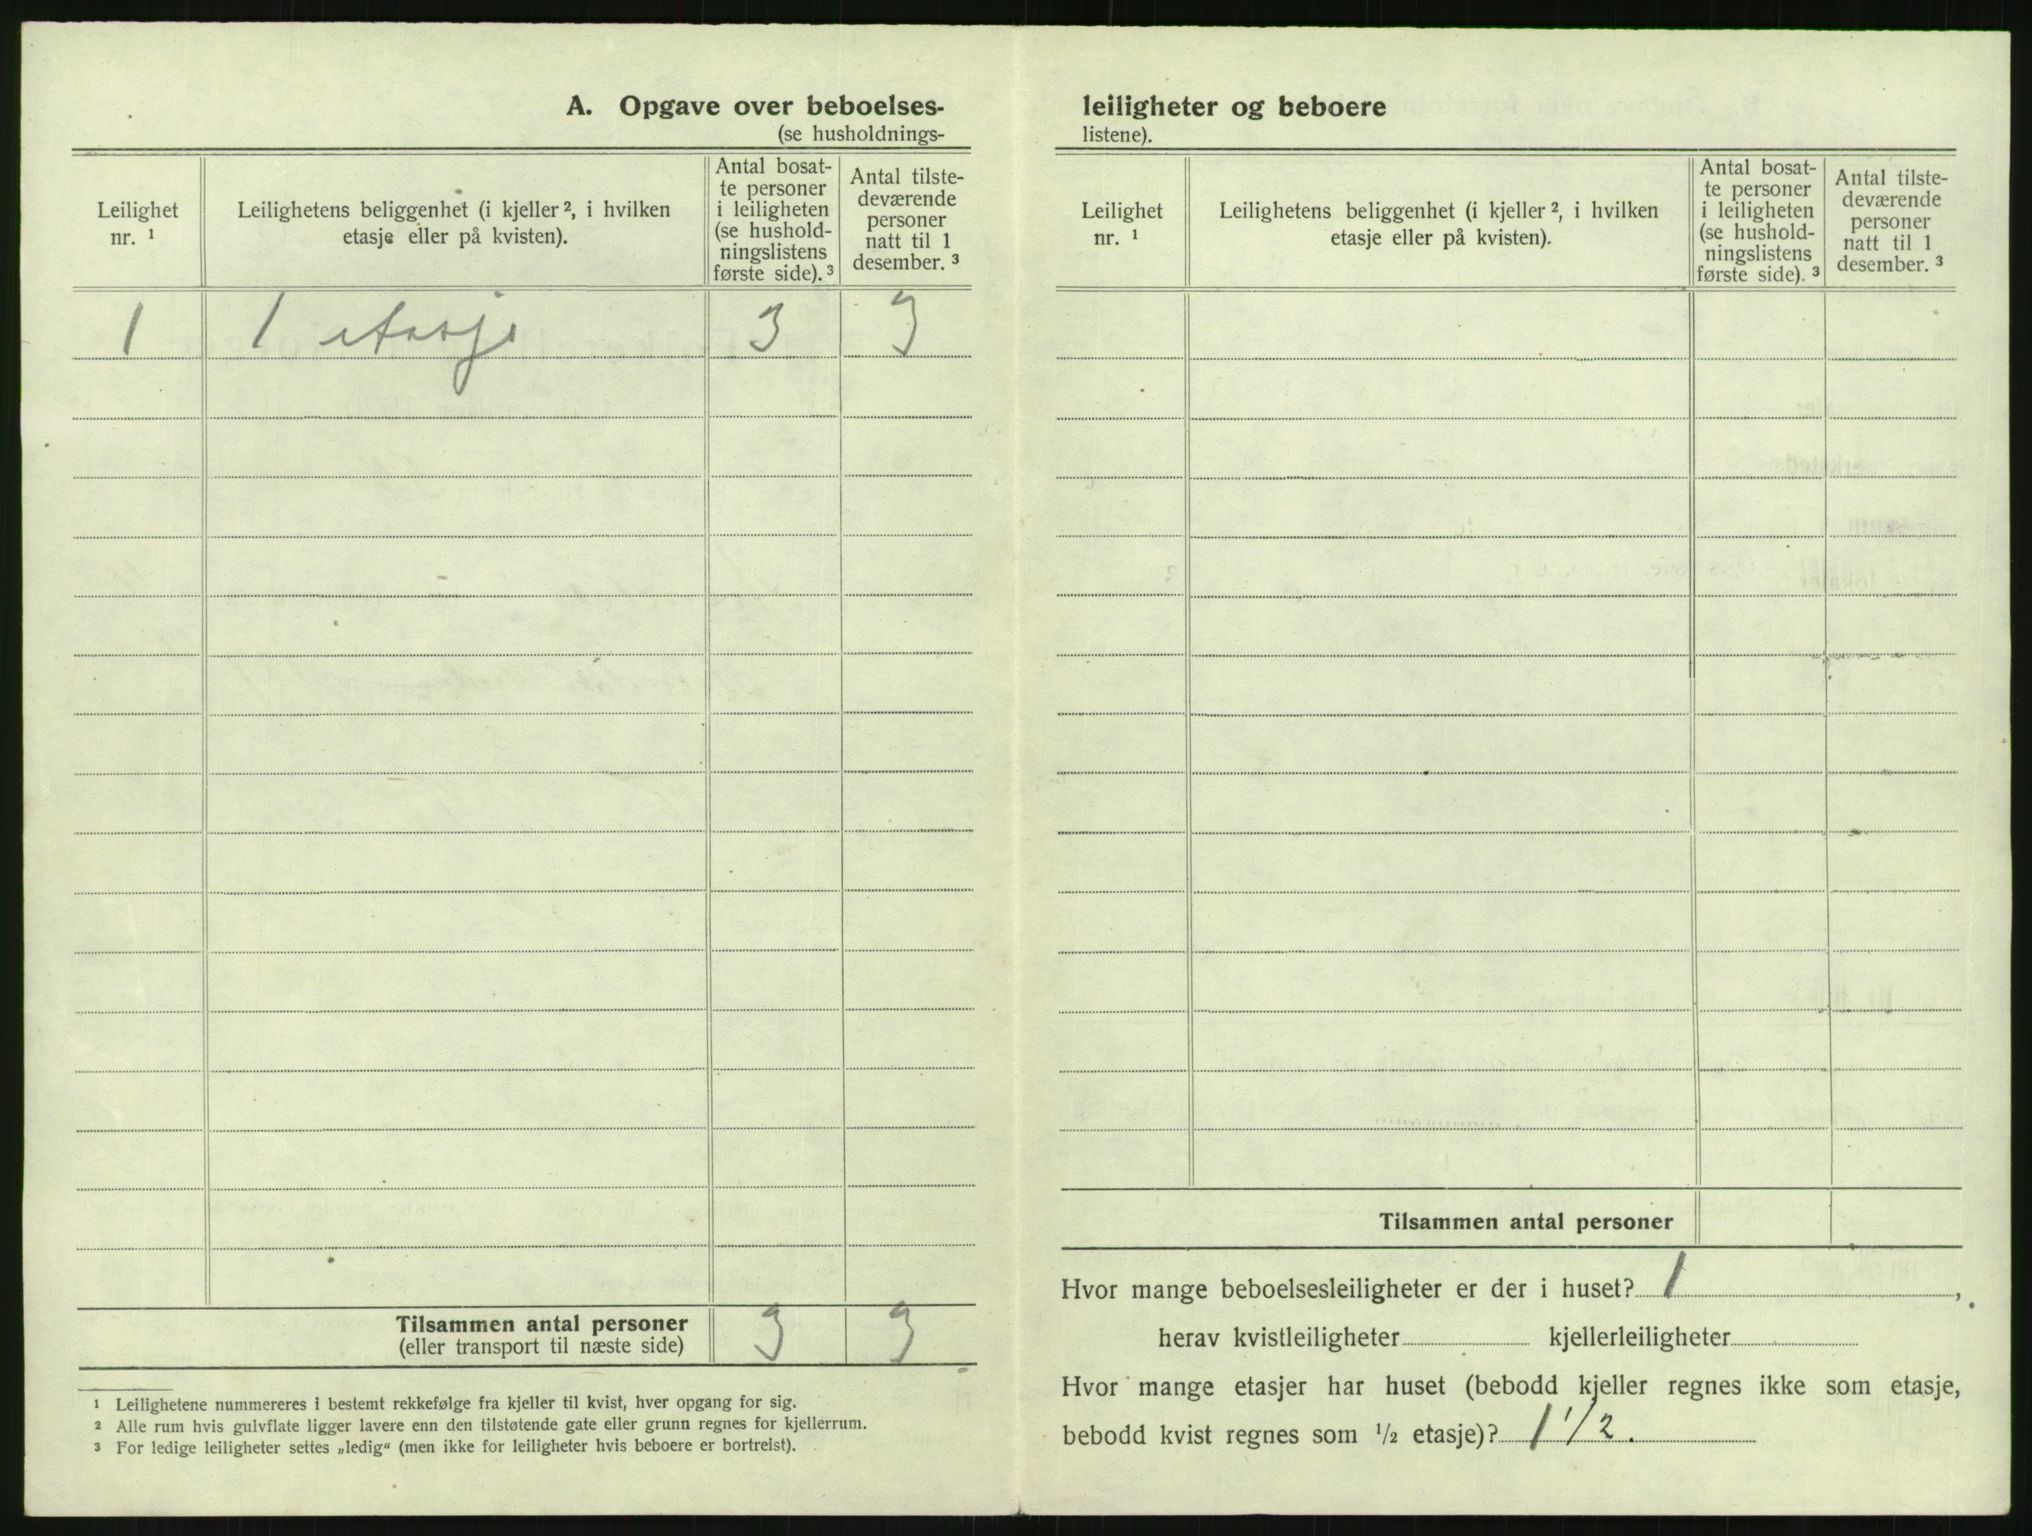 A. Opgave over beboelses-
(se husholdnings-
Leilighet
nr. ¹
Leilighetens beliggenhet (i kjeller ², i hvilken
etasje eller på kvisten).
Antal bosat-
te personer
i leiligheten
(se hushold-
ningslistens
første side). ³
Antal tilste-
deværende
personer
natt til 1
desember. ³
1 1 etasje 3 3
Tilsammen antal personer 3 3
(eller transport til næste side)
¹ Leilighetene nummereres i bestemt rekkefølge fra kjeller til kvist, hver opgang for sig.
² Alle rum hvis gulvflate ligger lavere enn den tilstøtende gate eller grunn regnes for kjellerrum.
³ For ledige leiligheter settes „ledig“ (men ikke for leiligheter hvis beboere er bortreist).
leiligheter og beboere
listene).
Leilighet
nr. ¹
Leilighetens beliggenhet (i kjeller ², i hvilken
etasje eller på kvisten).
Antal bosat-
te personer
i leiligheten
(se hushold-
ningslistens
første side). ³
Antal tilste-
deværende
personer
natt til 1
desember. ³
Tilsammen antal personer
Hvor mange beboelsesleiligheter er der i huset? 1,
herav kvistleiligheter kjellerleiligheter
Hvor mange etasjer har huset (bebodd kjeller regnes ikke som etasje,
bebodd kvist regnes som ½ etasje)? 1 1/2.